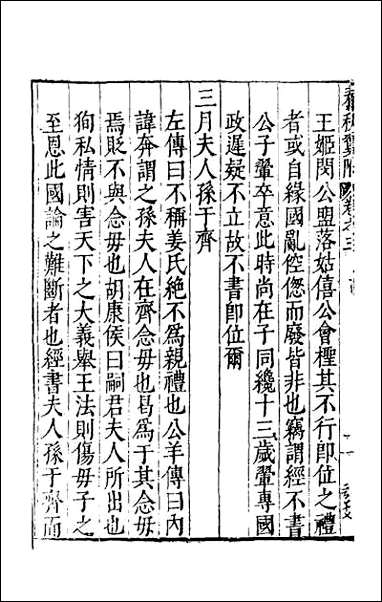 王姬閔公盟落姑僖公會檉其不行卽位之禮
者或自緣國亂倥傯而廢皆非也竊謂經不書
公子翬卒意此時尚在子同纔十三歲翬專國
政遲疑不立故不書卽位爾
三月夫人孫于齊
左傳曰不稱姜氏絕不爲親禮也公羊傳曰內
諱奔謂之孫夫人在齊念毋也曷爲于其念毋
焉貶不與念毋也胡康侯曰嗣君夫人所出也
狥私情則害天下之大義舉王法則傷毋子之
至恩此國論之難斷者也經書夫人孫于齊而